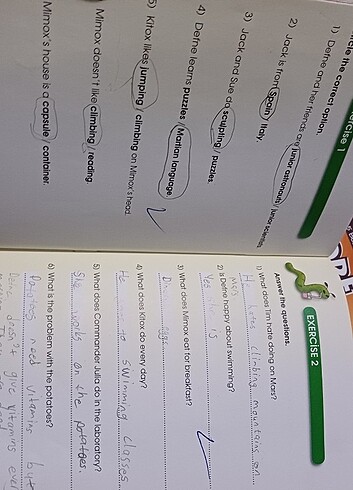 cle the correct option.
1) Defne and her friends are junior astronauts / junior scientists.
2) Jack is from Spain / Italy.
3) Jack and Sue do sculpting / puzzles.
4) Defne learns puzzles / Martian language.
5) Kitox likes jumping / climbing on Mimox's head.
Mimox doesn't like climbing / reading.
Mimox's house is a capsule / container.
EXERCISE 2
Answer the questions.
1) What does Tim hate doing on Mars?
He hates climbing mountains on
2) Is Defne happy about swimming?
Yes is
3) What does Mimox eat for breakfast?
4) What does Kitox do every day?
He to swimming classes
5) What does Commander Julia do in the laboratory?
She works on the potatoes.
6) What is the problem with the potatoes?
need vitamins but
doesn't give vitamins